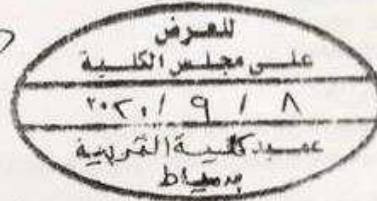 للعرض
على مجلس الكلية
٨ / ٩ / ٢٠٢٠
عميد كلية التربية
بدمياط